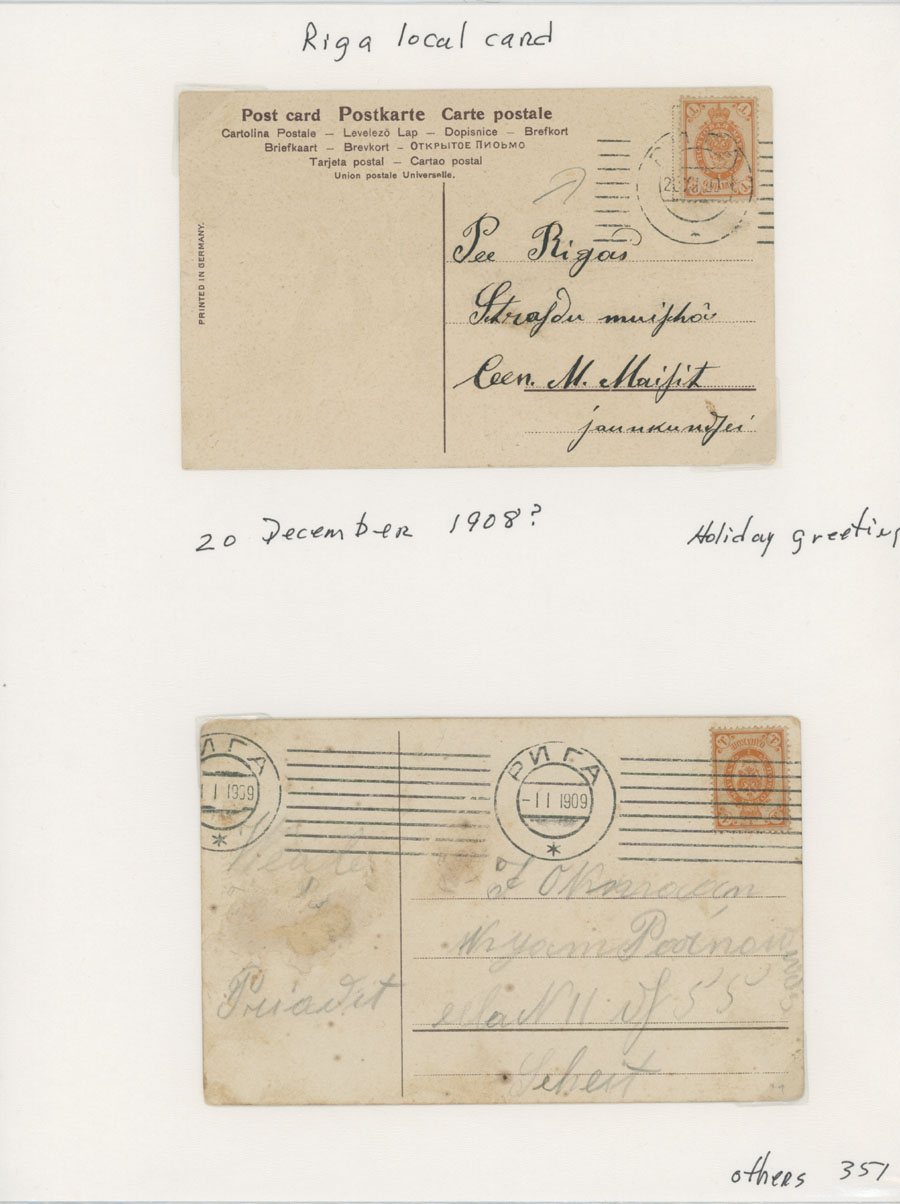 Riga local card
Post card Postkarte Carte postale
Cartolina Postale – Levelező Lap – Dopisnice – Brefkort
Briefkaart – Brevkort – ОТКРЫТОЕ ПИСЬМО
Tarjeta postal – Cartao postal
Union postale Universelle.
PRINTED IN GERMANY.
Pee Rigas
Strasdu muischâ
Ceen. M. Maisit
jaunkundsei
20 December 1908?
Holiday greeting
РИГА
1 1 1909
РИГА
-1 1 1909
Poinow
N 11 55
Scheit
others 351